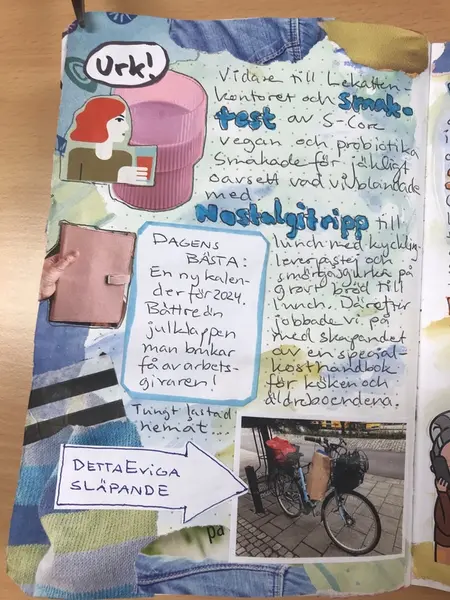 Urk!
Vidare till Lekatten-
kontoret och Smak-
test av S-Core
vegan och probiotika
Smakade förjäkligt
oavsett vad vi blandade
med
Nostalgitripp till
lunch med kyckling-
leverpastej och
smörgåsgurka på
grovt bröd till
lunch. Därefter
jobbade vi på
med skapandet
av en special-
kosthandbok
för köken och
äldreboendena.
DAGENS
BÄSTA:
En ny kalen-
der för 2024.
Bättre än
julklappen
man brukar
få av arbets-
givaren!
Tungt lastad
hemåt...
DETTA EVIGA
SLÄPANDE
på